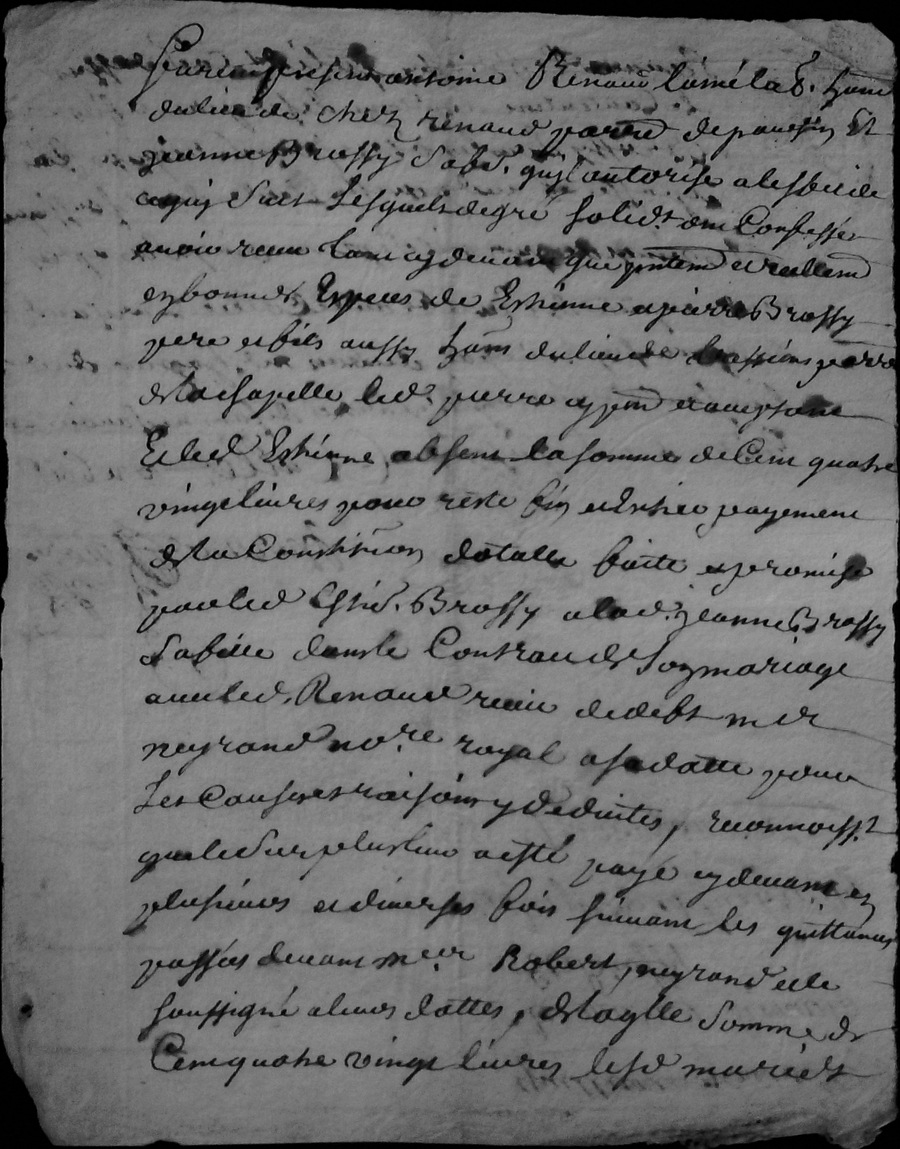 furent presents antoine Renaud laine lab. hant
du lieu de chez renaud parr. de poueyin Et
jeanne Brossy sa be. quil autorise a lesbeide
cequy suit Lesquels de gré solidt. ont Confessé
avoir receu tant cydevant que pntem et reellem
en bonnes Especes de Estienne et pierre Brossy
pere et fils aussy hans du lieu de parr
de la chapelle led. pierre cy pnt et acceptant
Et led Estienne absent la somme de Cent quatre
vingt livres pour reste fin et Entier payement
de la Constitu͠on dotalle faite et promise
par led Estie. Brossy a lad. jeanne Brossy
sa fille dans le Contract de son mariage
avec led. Renaud receu de deft me
neyrand no.re royal a sa datte pour
Les Causes et raisons y deduites, reconnoiss.t
que le surplus leur a esté payé cydevant en
plusieurs et diverses fois suivant les quittances
passées devant me Robert, neyrand et le
soussigné a leurs dattes, de laqlle somme de
Cent quatre vingt livres lesd mariés